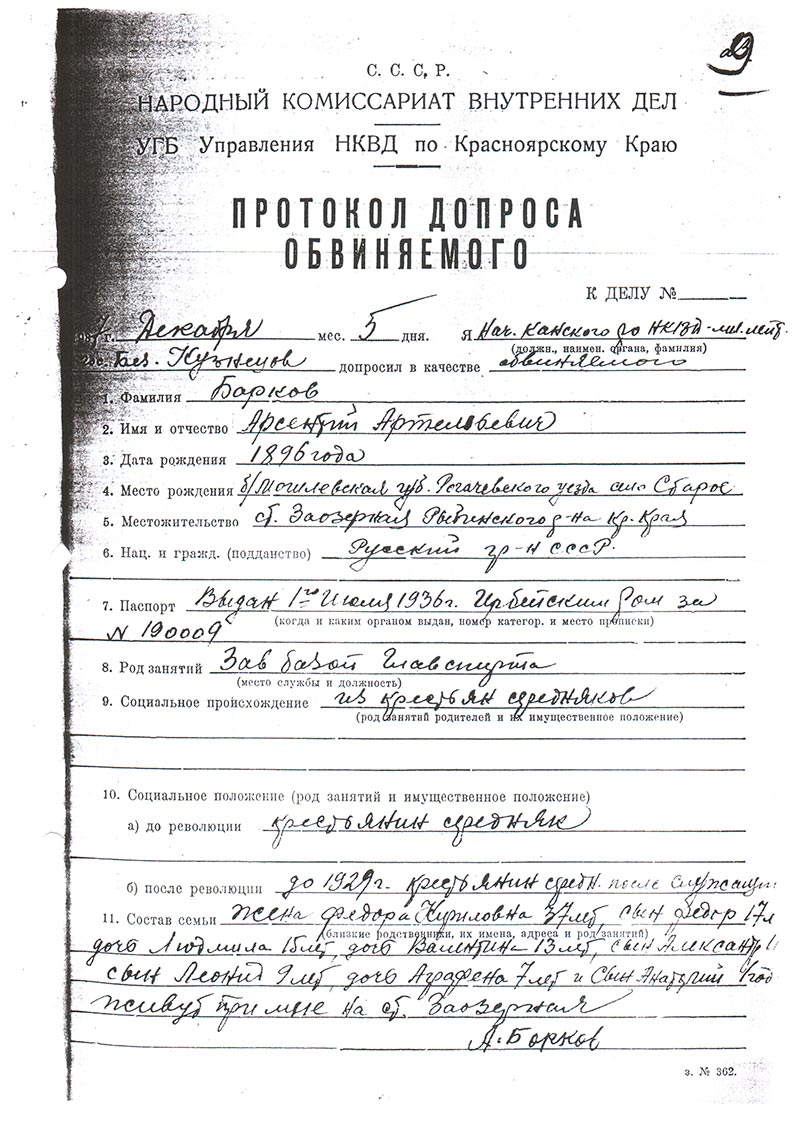 С. С. С. Р.
НАРОДНЫЙ КОМИССАРИАТ ВНУТРЕННИХ ДЕЛ
УГБ Управления НКВД по Красноярскому Краю
ПРОТОКОЛ ДОПРОСА
ОБВИНЯЕМОГО
К ДЕЛУ №
937 г. Декабря мес. 5 дня. Я Нач. Канского ро НКВД-
(должн., наимен. органа, фамилия)
Кузнецов допросил в качестве обвиняемого
1. Фамилия Барков
2. Имя и отчество Арсентий
3. Дата рождения 1896 года
4. Место рождения б/Могилевская губ. Рогачевского уезда село Старое
5. Местожительство ст. Заозерная Рыбинского р-на Кр. Края
6. Нац. и гражд. (подданство) Русский гр-н СССР.
7. Паспорт Выдан 1го Июля 1936 г. Ирбейским Ром за
(когда и каким органом выдан, номер категор. и место прописки)
N 190009
8. Род занятий Зав базой Главспирта
(место службы и должность)
9. Социальное происхождение из крестьян средняков
(род занятий родителей и их имущественное положение)
10. Социальное положение (род занятий и имущественное положение)
а) до революции крестьянин средняк
б) после революции до 1929 г. крестьянин средн. после
11. Состав семьи жена Федора Кириловна 37 лет, сын Федор 17 л
(близкие родственники, их имена, адреса и род занятий)
дочь Людмила 15 лет, дочь Валентина 13 лет, сын Александр
сын Леонид 9 лет, дочь Аграфена 7 лет и Сын Анатолий
живут при мне на ст. Заозерная
А. Борков
з. № 362.